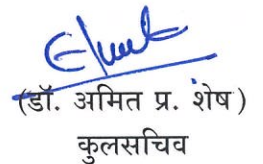 (डॉ. अमित प्र. शेष)
कुलसचिव